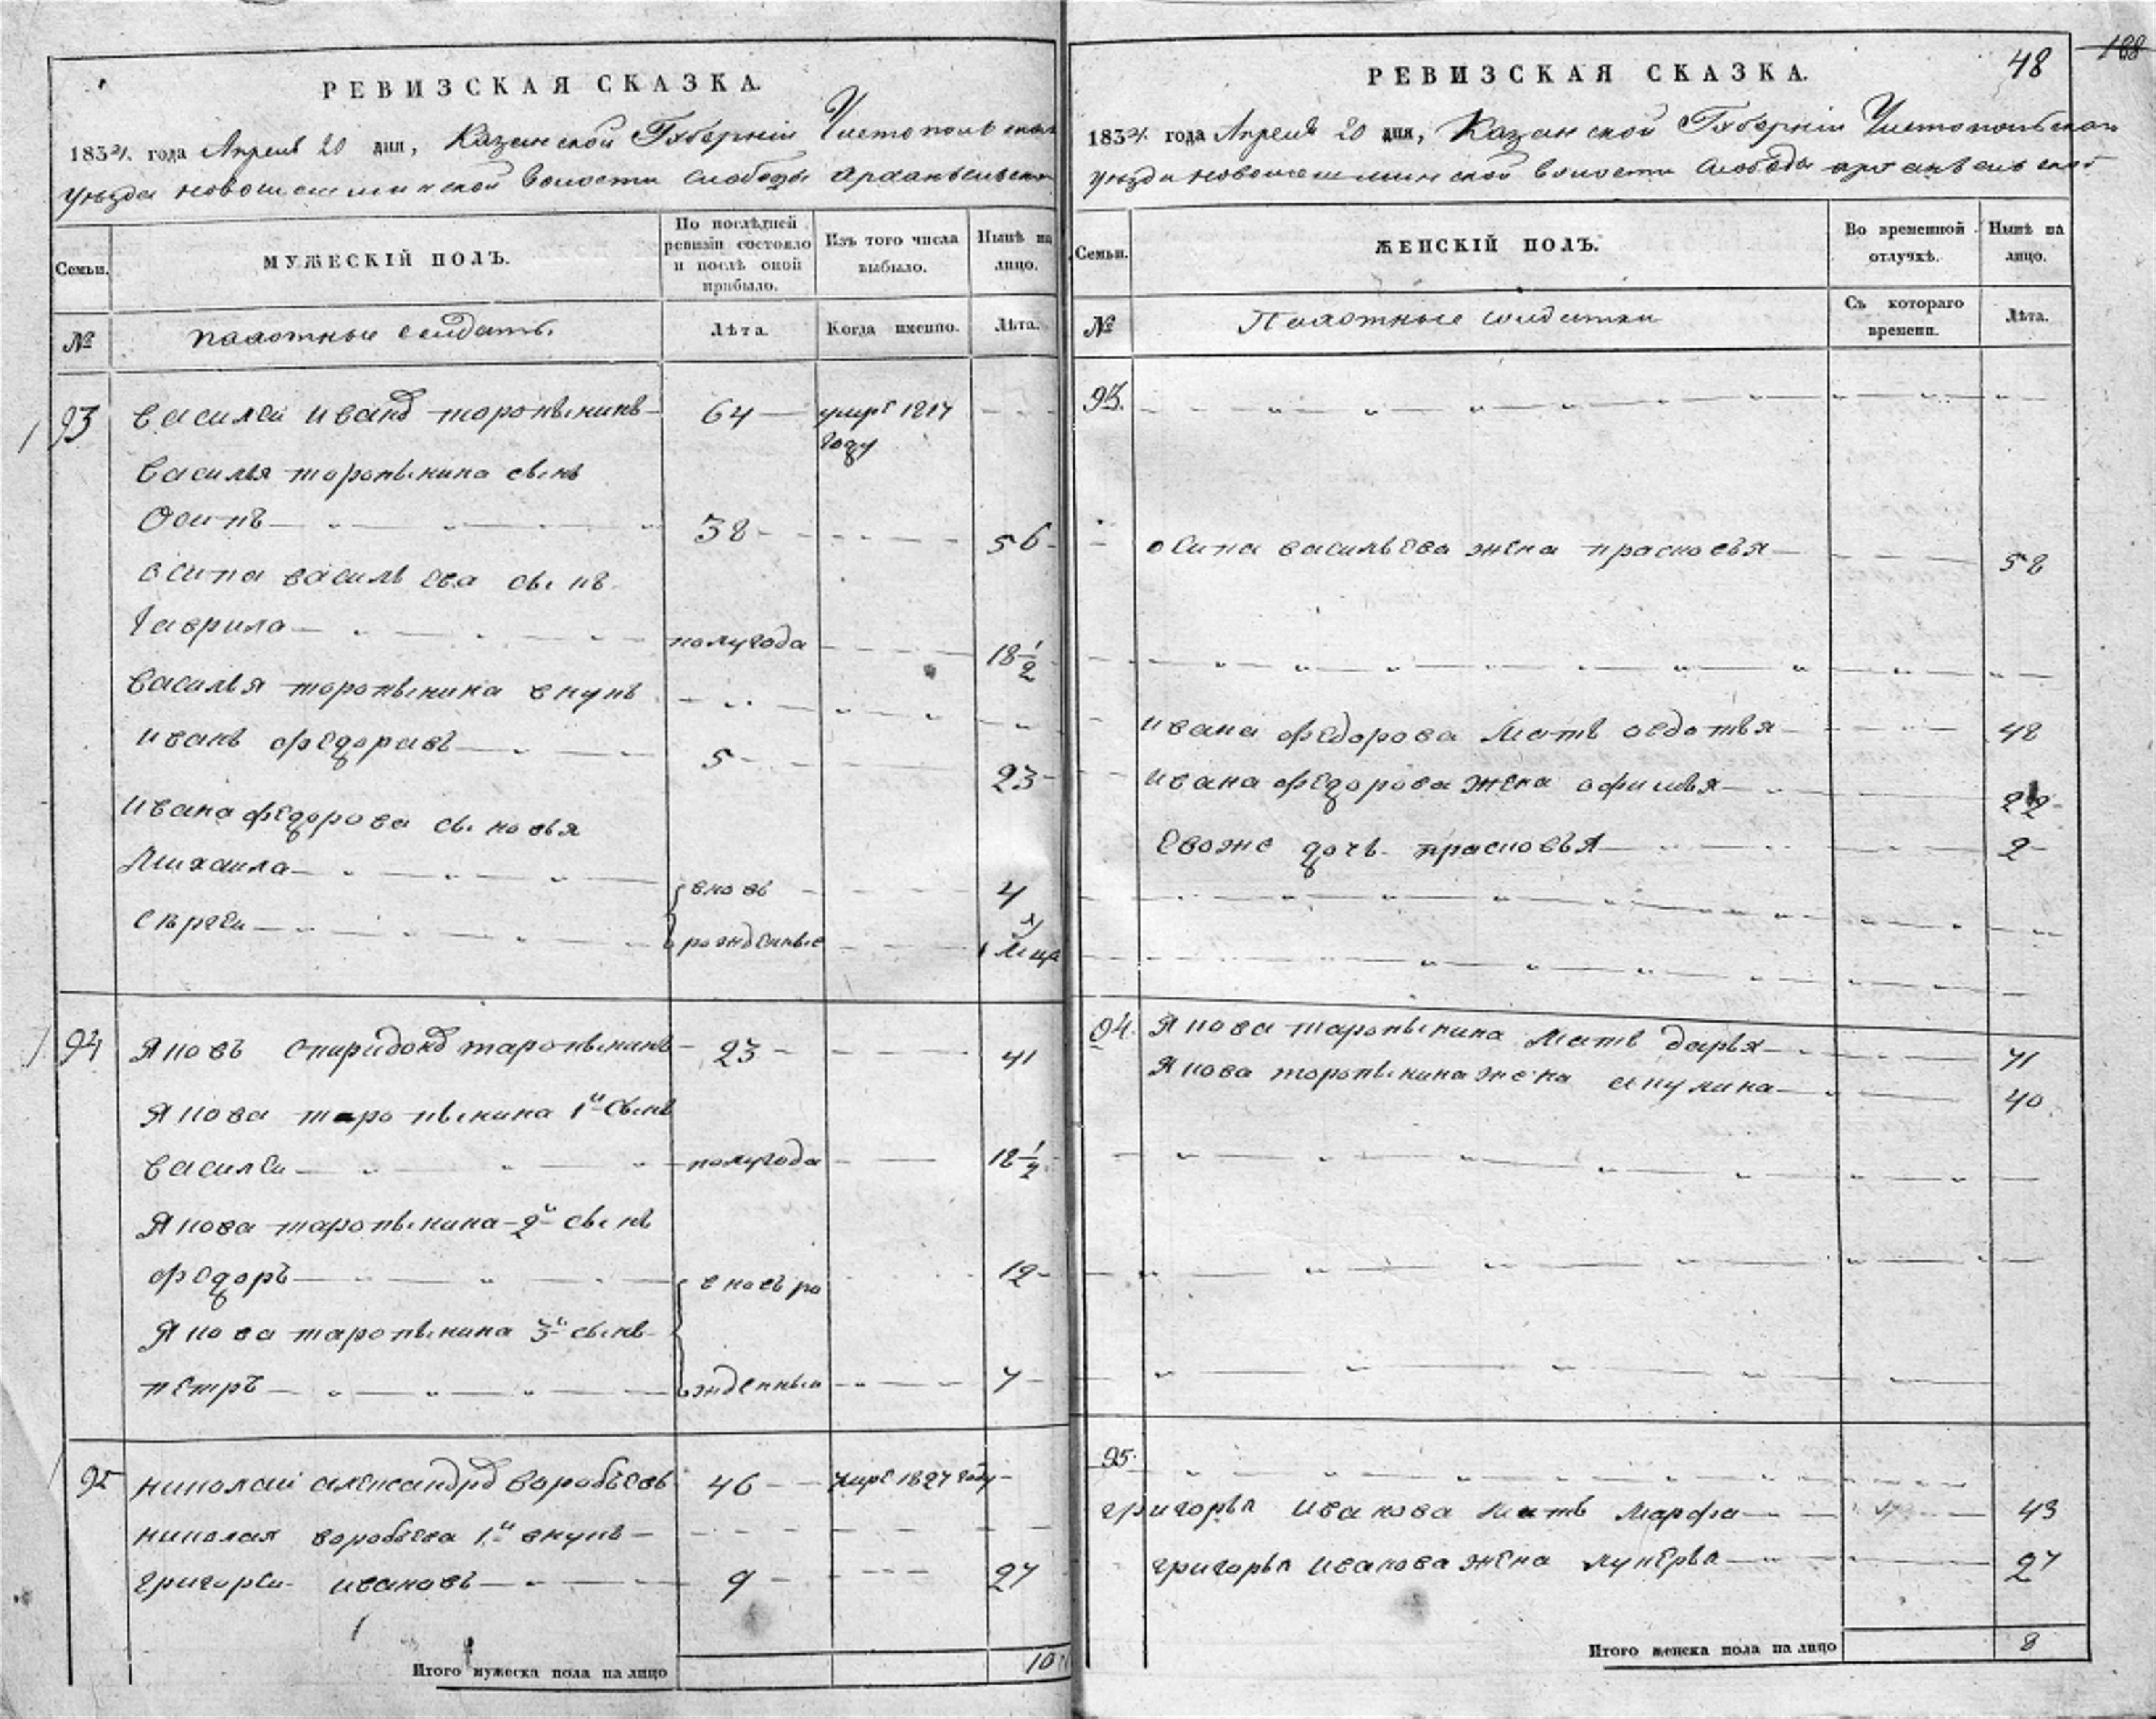 РЕВИЗСКАЯ СКАЗКА.
1834. года Апреля 20 дня, Казанской Губерніи Чистопольской
уезда новошешминской волости слободы Архангельской
Семьи.
МУЖЕСКІЙ ПОЛЪ.
По послѣдней ревизіи состояло и послѣ оной прибыло.
Изъ того числа выбыло.
Нынѣ на лицо.
№
пахотные солдаты.
Лѣта.
Когда именно.
Лѣта.
93 василеи иванд торопынинъ 64 умре 1817
году
василья торопынина сынъ
Осипъ 38 56
осипа васильева сынъ
гаврила полугода 18 1/2
василья торопынина внукъ
иванъ федоравъ 5 23
ивана федорова сыновья
михаила вновь 4
сергеи рожденные 1 м-ца
94 Яковъ спиридонд таропынинъ 23 41
Якова таропынина 1й сынъ
василеи полугода 18 1/2
Якова таропынина 2й сынъ
федоръ вновь ро 12
Якова таропынина 3й сынъ
петръ жденныи 7
95 николаи александрд воробьевъ 46 умре 1827 году
николая воробьева 1й внукъ
григореи ивановъ 9 27
Итого мужеска пола на лицо 10
48
188
РЕВИЗСКАЯ СКАЗКА.
1834. года Апреля 20 дня, Казанской Губерніи Чистопольской
уезда новошешминской волости слободы архангельской
Семьи.
ЖЕНСКІЙ ПОЛЪ.
Во временной отлучкѣ.
Нынѣ на лицо.
№
Пахотные солдатки
Съ котораго времени.
Лѣта.
93.
осипа васильева жена прасковья 58
ивана федорова мать овдотья 48
ивана федорова жена офимья 22
Евоже дочь прасковья 2
94. Якова таропынина мать дарья 71
Якова торопынина жена акулина 40
95.
григорья иванова мать марфа 43
григорья иванова жена лукерья 27
Итого женска пола на лицо 8